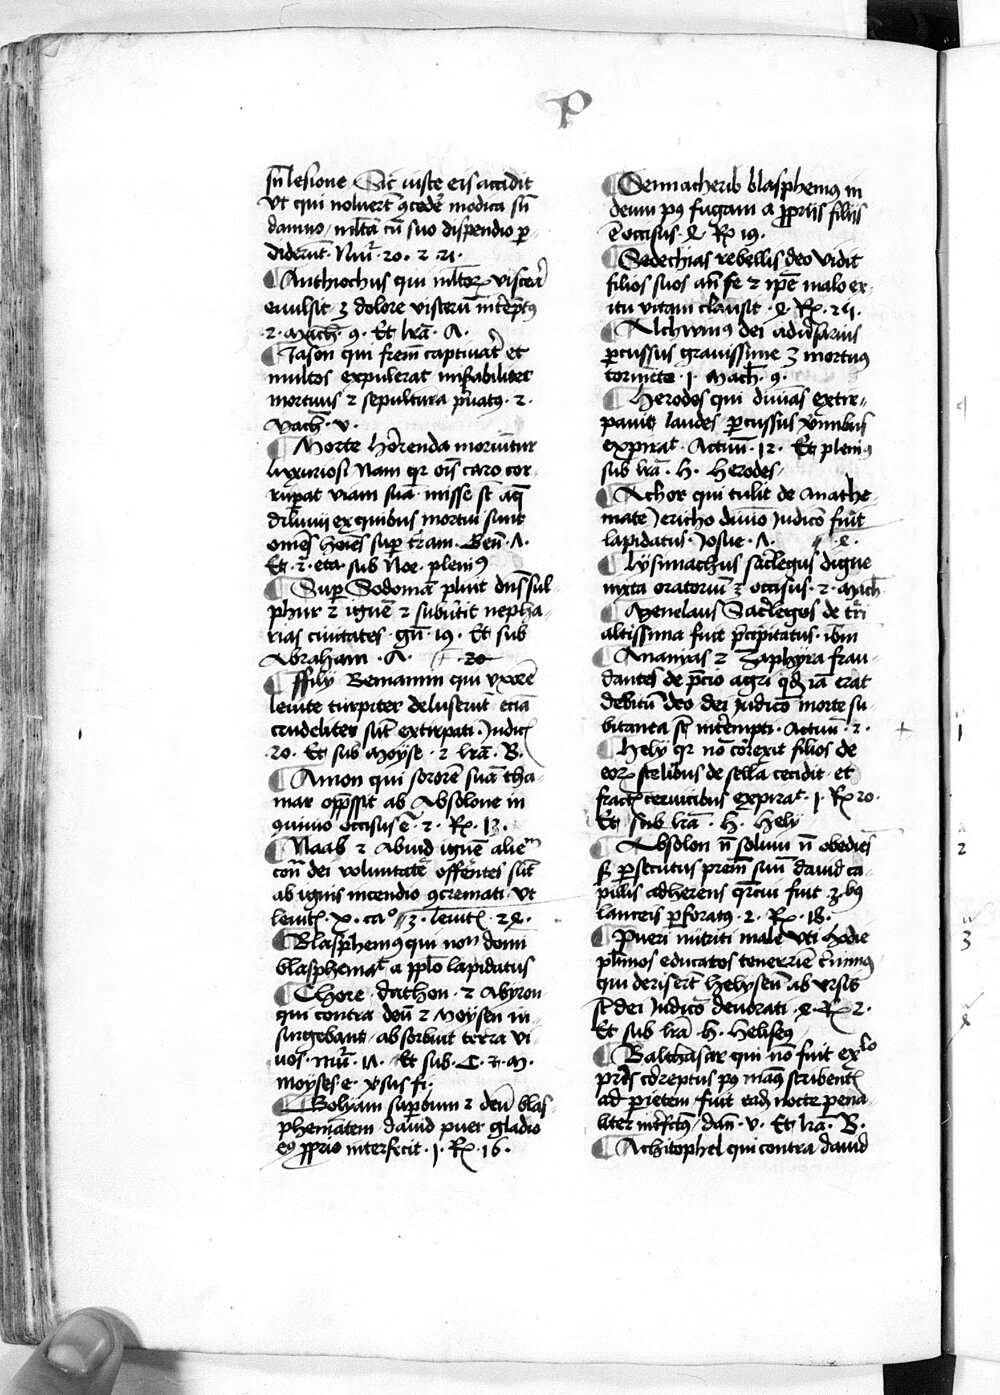 P
sñ lesione Sic iuste eis accidit
vt qui noluerũt ꝯcedẽ modica sñ
damno, mĺta cũ suo dispendio p̱-
diderũt. Nuɱ. 20. ⁊ 21.
¶ Anthiochus qui mĺtorꝝ viscera
euulsit ⁊ dolore visterũ intẽptꝰ
2. Mach̃. 9. Et lr̃a. A.
¶ Jason qui frem̃ captiuat̾ et
multos expulerat miserabiliter
mortuus ⁊ sepultura pͥuatꝰ. 2.
Mach̃. v.
¶ Morte horrenda moriũtur
luxuriosi Nam qr oĩs caro cor-
ruperat viam suã. misse sũt aq̃
diluuij ex quibus mortui sunt
omẽs hoĩes suꝑ terram. Geñ. A.
Et. 2. eta. sub Noe. pleniꝰ
¶ Super Sodomã pluit dñs sul-
phur ⁊ ignẽ ⁊ subũtit nepha-
rias ciuitates. gñ. 19. Et sub
Abraham. A. 20
¶ ffilij Beniamin qui vxorẽ
leuite turpiter deluserũt etiã
crudeliter sũt extirpati. Judic̃
20. Et sub Moyse. ⁊ lrã. B.
¶ Amon qui sororẽ suã tha-
mar opp̃ssit ab Absolone in
ꝯuiuio occisus ẽ. 2. Rꝝ. 13.
¶ Naab ⁊ Abiud ignẽ alienũ
cont̃ dei voluntatẽ offerẽtes sũt
ab ignis incendio ꝯcremati. vt
leuitꝭ. x. caº 3. leuitꝭ. 24.
¶ Blasphemꝰ qui nomẽ domĩ
blasphemat̃ a pp̃lo lapidatus
¶ Chore. dathon. ⁊ Abyron
qui contra deũ ⁊ Moysen in-
surgebant, absorbuit terra vi-
uos. nuɱ. 16. Et sub. C. ⁊. M.
moyses e. vsus fi.
¶ Golyam superbum ⁊ deũ blas-
phemãtem dauid puer gladio
eiꝰ ꝓprio interfecit. 1. Rꝝ. 16.
¶ Sennacherib blasphemꝰ in
deum pꝰ fugam a ꝓprijs filijs
ẽ occisus. 4. Rꝝ 19.
¶ Sedechias rebellis deo vidit
filios suos añ se ⁊ ip̃e malo ex-
itu vitam clausit. 4. Rꝝ. 24.
¶ Alchimus dei aduersarius
percussus grauissime ⁊ mortuꝰ
tormẽto. 1. Mach̃. 9.
¶ Herodes qui diuinas extir-
pauit laudes percussus v̾mibus
expirat̃. Actuũ. 12. Et pleniꝰ
sub lrã. H. Herodes
¶ Achor qui tulit de Anathe-
mate Jericho diuino Judico fuit
lapidatus. Josue. A.
¶ Lysimachus sac̾legus digne
iuxta oratoriũ ẽ occisus. 2. Mach̃
¶ Menelaus Sac̾legos de tri
altissima fuit p̃cipitatus. ibm̃
¶ Ananias ⁊ Zaphyra frau-
dantes de p̃cio agri qd̃ iã erat
debitũ deo dei judico morte su-
bitanea sũt int̾empti. Actuũ. 2.
¶ Hely qr nõ correxit filios de
eorꝝ scelibus de sella cecidit et
fractꝭ ceruicibus expirat̃. 1. Rꝝ 20.
Et sub lrã. H. Hely
¶ Absolon ñ solum ñ obediẽs
s; persecutus prem̃ suũ dauid ca-
pillis adherens quercui fuit 3bꝰ
lanceis perforatꝰ. 2. Rꝝ. 18.
¶ Pueri nutriti male vti hodie
plr̃imos educatos tenerriẽ c̾nimꝰ
qui deriserũt helysẽũ ab vrsis
sũt dei Judico deuorati. 4. Rꝝ 2.
Et sub lrã H. Heliseꝰ
¶ Balthasar qui nõ fuit exᵉlo
pr̃is correptus pꝰ manꝰ scribentꝭ
ad parietem fuit eadẽ nocte pena-
liter int̾fectꝰ, dañ. v. Et lrã. B.
¶ Achitophel qui contra dauid